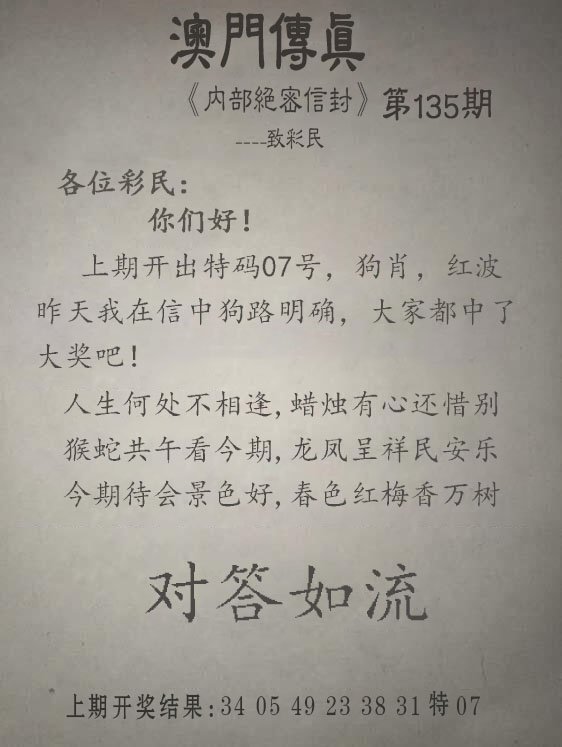 澳門傳眞
《内部絕密信封》第135期
----致彩民
各位彩民：
你们好！
上期开出特码07号，狗肖，红波
昨天我在信中狗路明确，大家都中了
大奖吧！
人生何处不相逢,蜡烛有心还惜别
猴蛇共午看今期,龙凤呈祥民安乐
今期待会景色好,春色红梅香万树
对答如流
上期开奖结果:34 05 49 23 38 31 特07